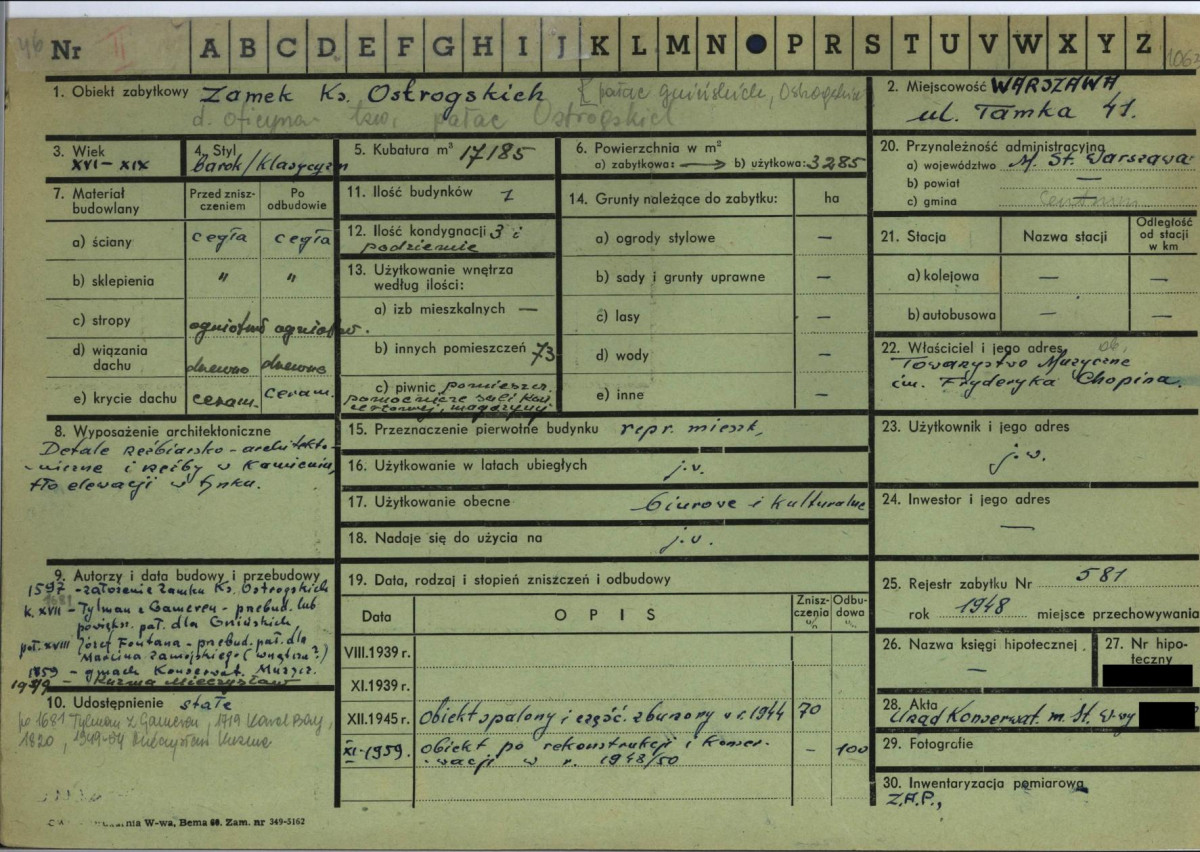 46 Nr II A B C D E F G H I J K L M N P R S T U V W X Y Z
1. Obiekt zabytkowy Zamek Ks. Ostrogskich [pałac Gnińskich, Ostrogskich
d. oficyna tzw. pałac Ostrogskich
2. Miejscowość WARSZAWA
ul. Tamka 41.
3. Wiek
XVI - XIX
4. Styl
barok/klasycyzm
5. Kubatura m³ 17185
6. Powierzchnia w m²
a) zabytkowa: → b) użytkowa: 3285
7. Materiał
budowlany
Przed znisz-
czeniem
Po
odbudowie
a) ściany cegła cegła
b) sklepienia " "
c) stropy ogniotrw ogniotrw.
d) wiązania
dachu drewno drewno
e) krycie dachu ceram. ceram.
8. Wyposażenie architektoniczne
Detale rzeźbiarsko-architekto-
-niczne i rzeźby w kamieniu,
tło elewacji w tynku.
9. Autorzy i data budowy i przebudowy
1597 - założenie zamku Ks. Ostrogskich
1681
k. XVII - Tylman z Gameren - przebud. lub
powiększ. pał. dla Gnińskich
poł. XVIII Józef Fontana - przebud. pał. dla
Marcina Zamojskiego (wnętrza?)
1859 - gmach Konserwat. Muzycz.
1949 - Kuzma Mieczysław
10. Udostępnienie stałe
po 1681 Tylman z Gameren, 1719 Karol Bay,
1820, 1949-54 Mieczysław Kuzma
nia W-wa, Bema 60. Zam. nr 349-5162
11. Ilość budynków 1
12. Ilość kondygnacji 3 i
podziemie
13. Użytkowanie wnętrza
według ilości:
a) izb mieszkalnych —
b) innych pomieszczeń 73
c) piwnic pomieszcz.
pomocnicze sali kon
certowej, magazyny
14. Grunty należące do zabytku: ha
a) ogrody stylowe —
b) sady i grunty uprawne —
c) lasy —
d) wody —
e) inne —
15. Przeznaczenie pierwotne budynku repr. mieszk.
16. Użytkowanie w latach ubiegłych j.w.
17. Użytkowanie obecne biurowe i kulturalne
18. Nadaje się do użycia na j.w.
19. Data, rodzaj i stopień zniszczeń i odbudowy
Data OPIS Znisz-
czenia
%
Odbu-
dowa
%
VIII.1939 r.
XI.1939 r.
XII.1945 r. Obiekt spalony i część. zburzony w r. 1944 70
XI-1959. obiekt po rekonstrukcji i konser-
-wacji w r. 1948/50 - 100
20. Przynależność administracyjna
a) województwo M. St. Warszawa
b) powiat —
c) gmina
21. Stacja Nazwa stacji Odległość
od stacji
w km
a) kolejowa — —
b) autobusowa — —
22. Właściciel i jego adres
Towarzystwo Muzyczne
im. Fryderyka Chopina.
23. Użytkownik i jego adres
j.w.
24. Inwestor i jego adres
—
25. Rejestr zabytku Nr 581
rok 1948 miejsce przechowywania
26. Nazwa księgi hipotecznej
—
27. Nr hipo-
teczny
28. Akta
Urząd Konserwat. m. St. W-wy
29. Fotografie
30. Inwentaryzacja pomiarowa
Z.A.P.,